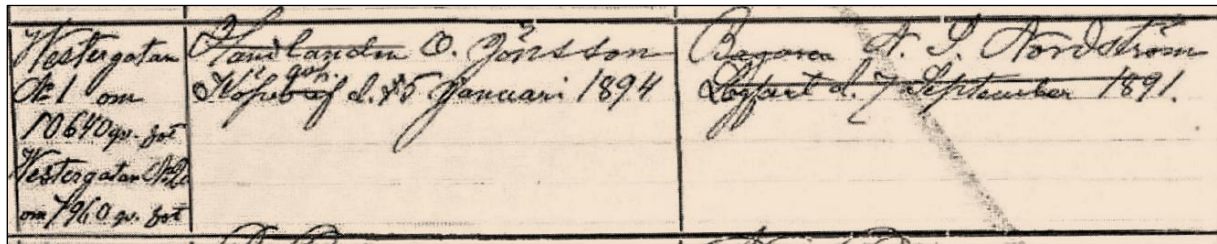 Westergatan
№ 1 om
10640 qv. fot
Westergatan № 2
om 7960 qv. fot
Handlanden O. Jönsson
Köpebref d. 25 Januari 1894
Bagaren N. P. Nordström
d. 7 September 1891.